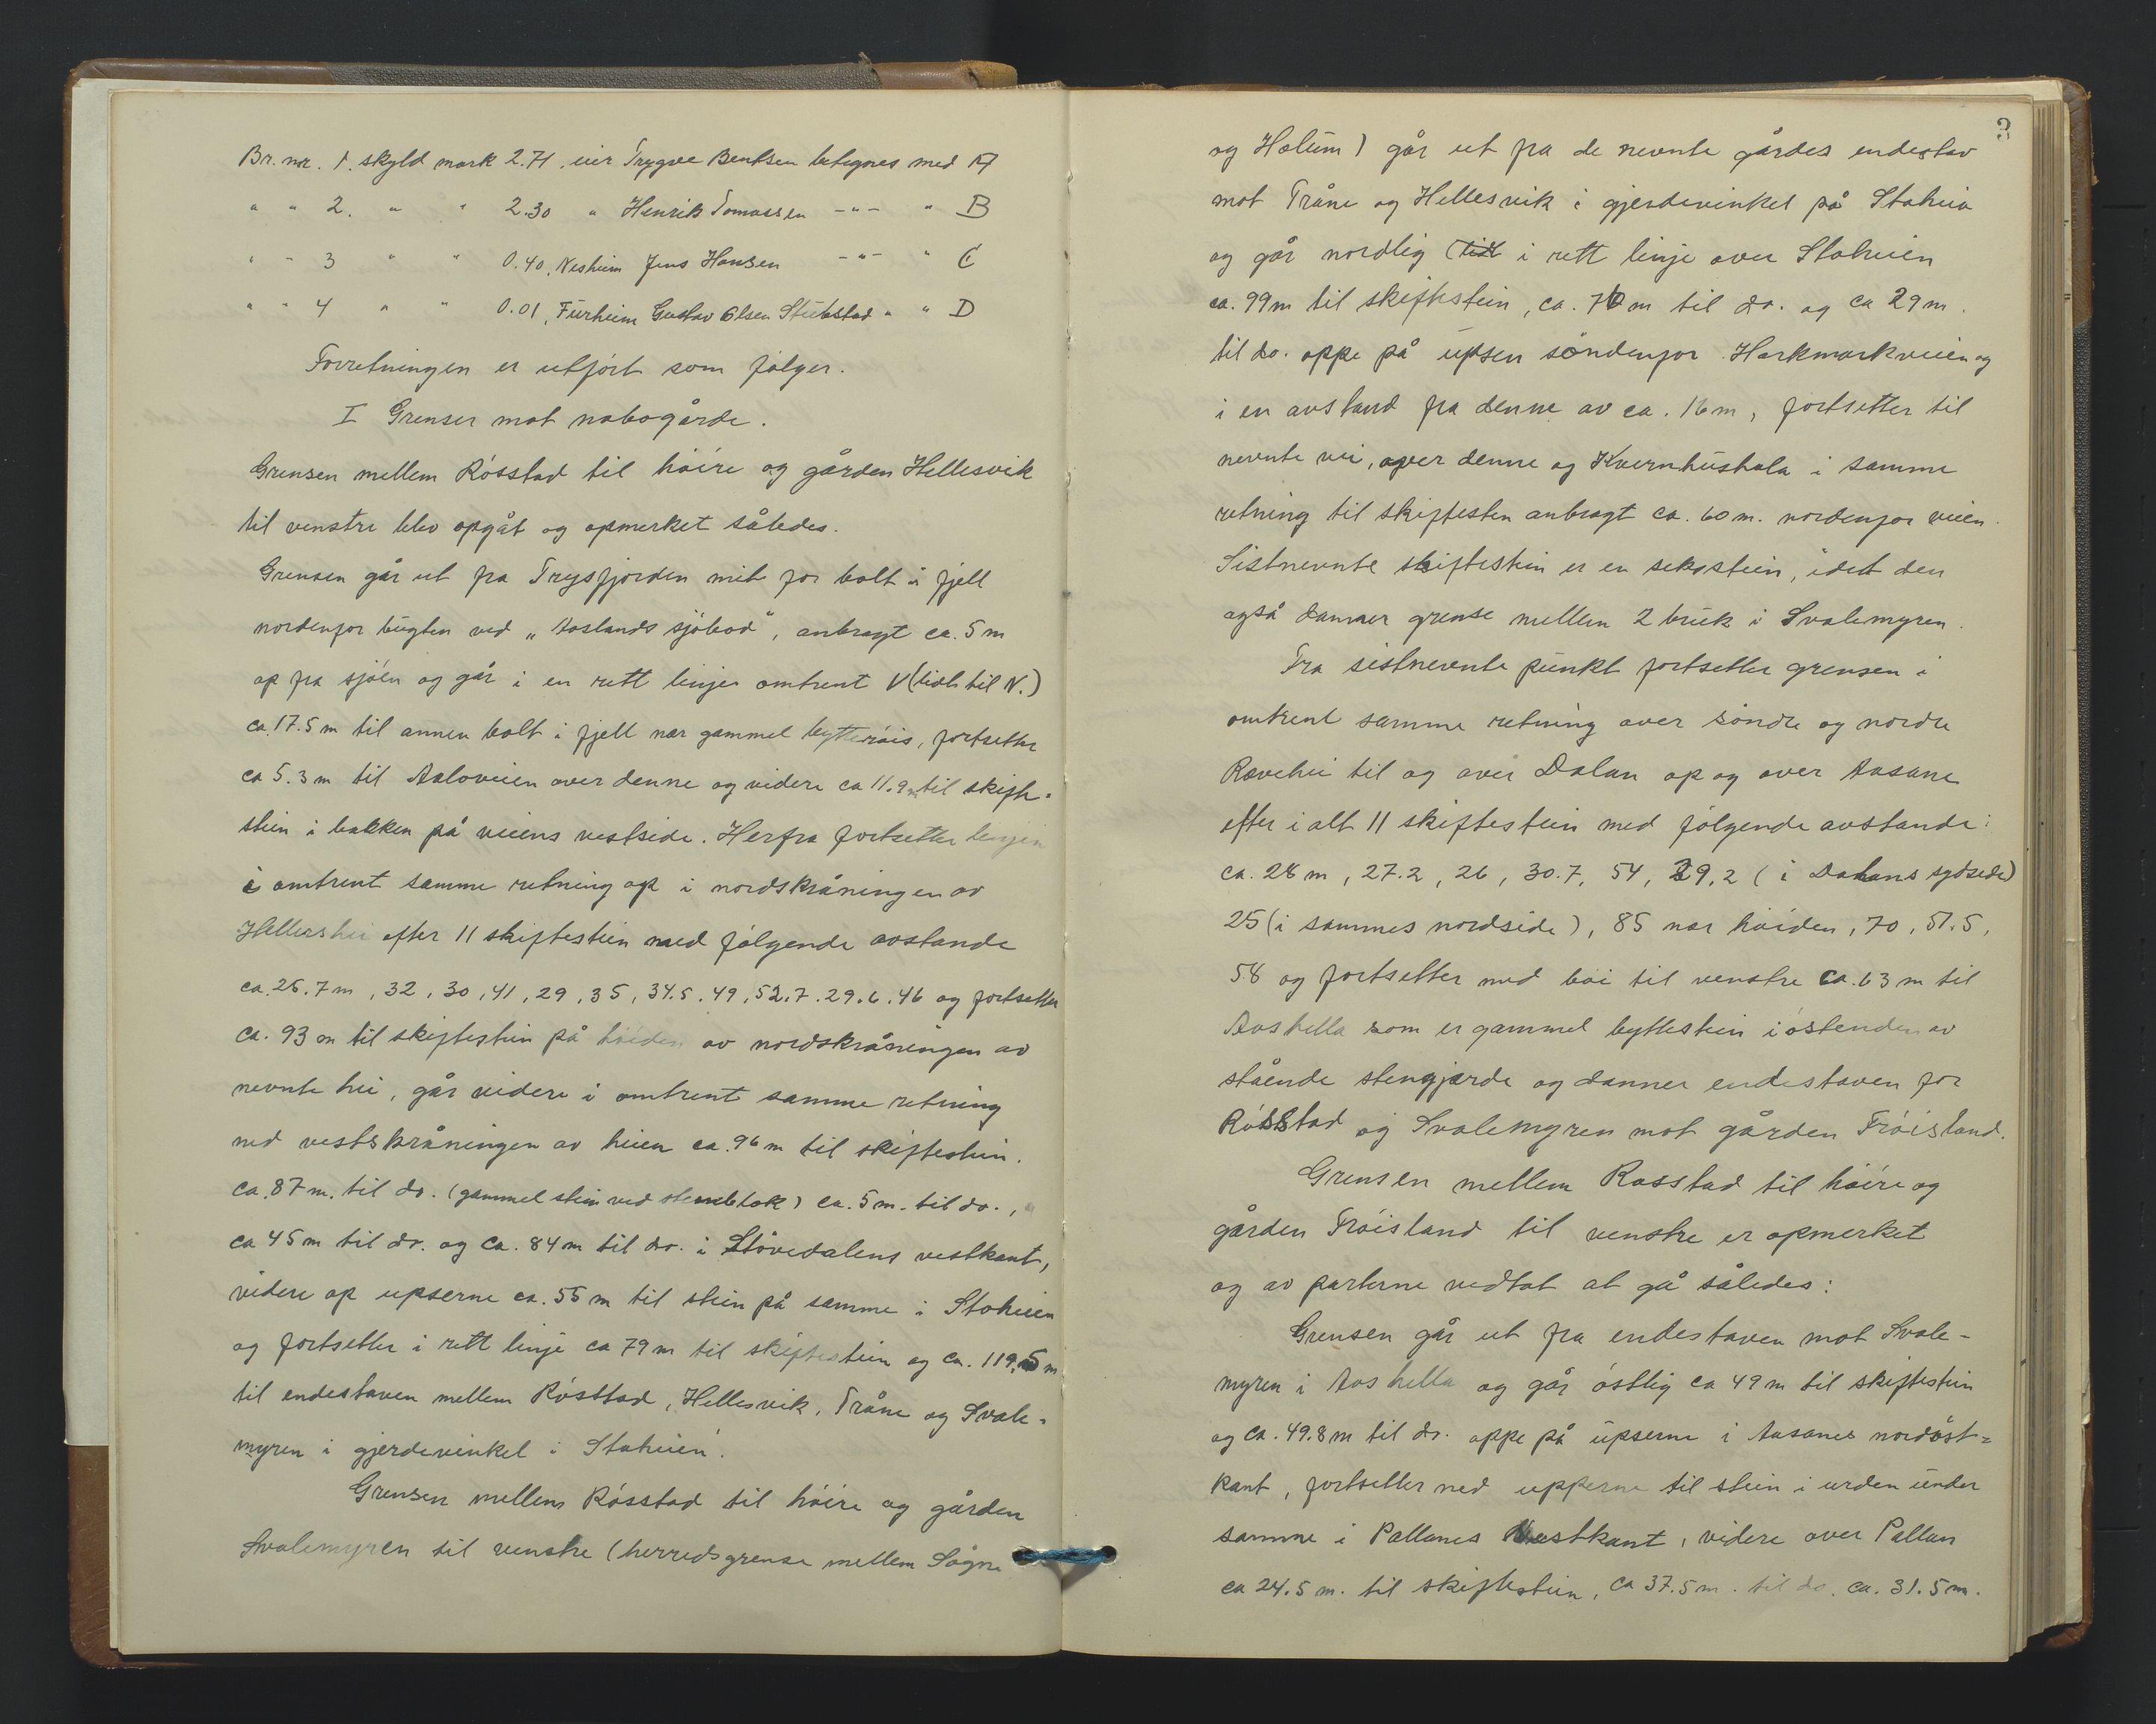 Br. nr. 1. skyld mark 2.71, eier Trygve Bentsen betegnes med A
" " 2. " " 2.30 " Henrik Tomassen -"- " B
" " 3 " " 0.40, Nesheim Jens Hansen -"- " C
" " 4 " " 0.01, Furheim Gustav Olsen Stubstad " " D
Forretningen er utført som følger.
I Grenser mot nabogårde.
Grensen mellem Rósstad til høire og gården Hellesvik
til venstre blev opgåt og opmerket således.
Grensen går ut fra Trysfjorden mit for bolt i fjell
nordenfor bugten ved „Aaslands sjøbod", anbragt ca. 5 m
op fra sjøen og går i en rett linje omtrent V (lidt til N.)
ca. 17.5 m til annen bolt i fjell nær gammel bytterøis, fortsetter
ca 5.3 m til Aaloveien over denne og videre ca 11.9 m til skifte-
stein i bakken på veiens vestside. Herfra fortsetter linjen
i omtrent samme retning op i nordskråningen av
Hellershei efter 11 skiftestein med følgende avstande
ca. 26.7 m, 32, 30, 41, 29, 35, 34.5. 49, 52.7. 29.6. 46 og fortsetter
ca. 93 m til skiftestein på høiden av nordskråningen av
nevnte hei, går videre i omtrent samme retning
ned vestskråningen av heien ca. 96 m til skiftestein.
ca. 87 m. til do. (gammel stein ved stenblok) ca. 5 m. til do.,
ca 45 m til do. og ca. 84 m til do. i Stóvedalens vestkant,
videre op upserne ca. 55 m til stein på samme i Stoheien
og fortsetter i rett linje ca 79 m til skiftestein og ca. 119,5 m
til endestaven mellem Rósstad, Hellesvik, Tråne og Svale-
myren i gjerdevinkel i Stoheien.
Grensen mellem Rósstad til høire og gården
Svalemyren til venstre (herredsgrense mellem Søgne
3
og Halum) går ut fra de nevnte gårdes endestav
mot Tråne og Hellesvik i gjerdevinkel på Stoheia
og går nordlig (tidt i rett linje over Stoheien
ca. 99 m til skiftestein, ca. 70 m til do. og ca 29 m.
til do. oppe på upsen søndenfor Harkmarkveien og
i en avstand fra denne av ca. 16 m, fortsetter til
nevnte vei, over denne og Kvernhushola i samme
retning til skiftesten anbragt ca. 60 m. nordenfor veien.
Sistnevnte skiftestein er en sekstein, idet den
også danner grense mellem 2 bruk i Svalemyren.
Fra sistnevnte punkt fortsetter grensen i
omtrent samme retning over søndre og nordre
Ravehei til og over Dalan op og over Aasane
efter i alt 11 skiftestein med følgende avstande:
ca. 28 m, 27.2, 26, 30.7, 54, 39,2 (i Dalans sydside)
25 (i sammes nordside), 85 nær høiden, 70, 51.5,
58 og fortsetter med bøi til venstre ca. 63 m til
Aoshella som er gammel byttestein i østenden av
stående stengjærde og danner endestaven for
Rósstad og Svalemyren mot gården Frøisland.
Grensen mellem Rosstad til høire og
gården Frøisland til venstre er opmerket
og av parterne vedtat at gå således:
Grensen går ut fra endestaven mot Svale-
myren i Aoshella og går østlig ca 49 m til skiftestein
og ca. 49.8 m til do. oppe på upserne i Aasanes nordøst-
kant, fortsetter ned upperne til stein i urden under
samme i Pallanes Vestkant, videre over Pallan
ca 24.5 m. til skiftestein, ca 37.5 m. til do. ca. 31.5 m.